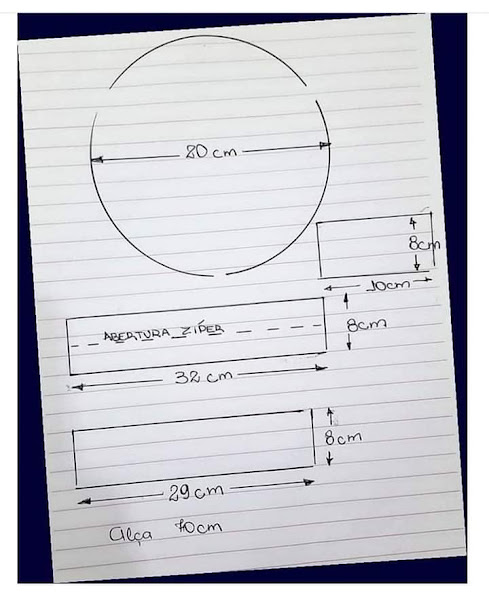 20 cm
8cm
10cm
ABERTURA ZÍPER
8cm
32 cm
8cm
29 cm
alça 70cm